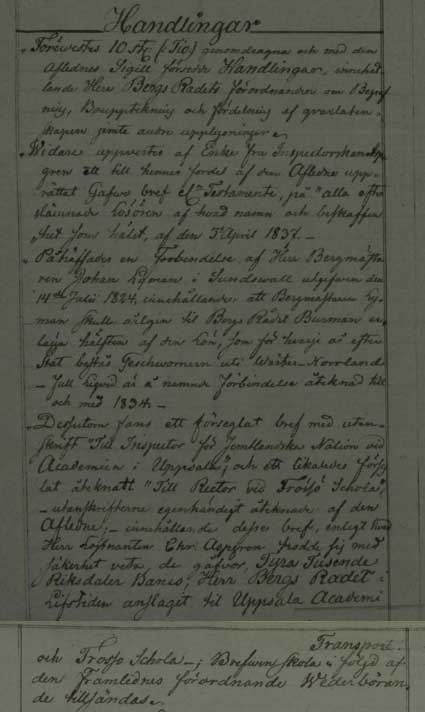 Handlingar
Förevistes 10 st: (:Tio) genomdragna och med den
Aflednes Sigill försedde Handlingar, innehål-
lande Herr Bergs Rådets förordnanden om Begraf
ning, Bouppteckning och fördelning af qvarlåten-
skapen jemte andre upplysningar.
Widare uppvistes af Enke fru Inspectorskan Asp-
gren ett till hennes fördel af den Aflednes upp-
rättat Gåfvo bref el: Testamente, på "alla efter
lämnade Lösören af hvad namn och beskaffen
het som hälst, af den 5 April 1837.-
Påträffades en Förbindelse, af Herr Bergmästa
ren Johan Löman i Sundswall utgifven den
14de Julii 1824, innehållande att Bergmästaren
man skulle årligen til Bergs Rådet Burman er-
lägga hälften af den Lön, som för hvarje år efter
Stat bestås Geschwornern uti Wäster-Norrland
- full liqvid är å nämnde förbindelse åteknad till
och med 1834.-
Dessutom fans ett förseglat bref med utan-
skrift "Till Inspector för Jemtlandska Nation vid
Academien i Uppsala", och ett likaledes förseg
lat åteknatt "Till Rector vid Frösö Schola",
- utanskrifterne egenhändigt åteknade af den
Aflednes;- innehållande desse bref, enligt hvad
Herr Löjtnanten Ehr: Aspgren trodde sig med
säkerhet veta, de gåfvor, Fyra Tusende
Riksdaler Banco, Herr Bergs Rådet i
Lifstiden anslaget til Uppsala Academi
Transport.
och Frösö Schola-; Brefwen skola i följd af
den Framlednes förordnande Wederböran
de tillsändas.